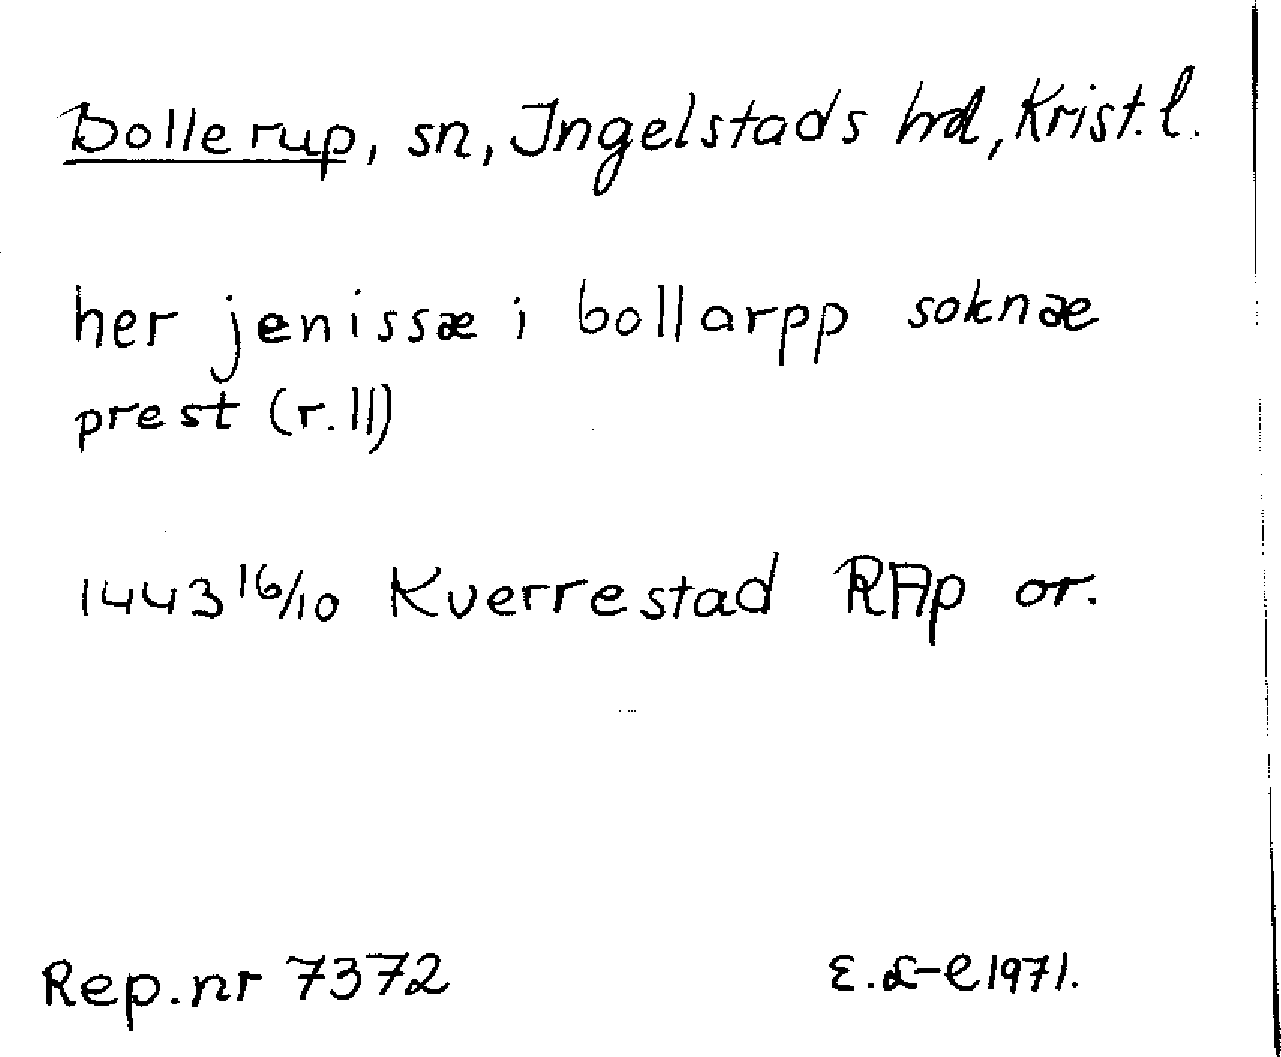 Bollerup, sn, Ingelstads hd, Krist. l.
her jenissæ i bollarpp soknæ
prest (r. 11)
1443 16/10 Kverrestad RAp or.
Rep. nr 7372
E. L-e 1971.